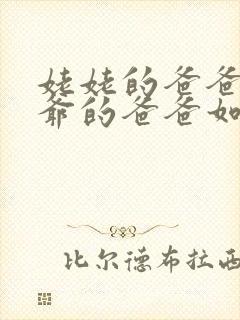 姥姥的爸爸
爺的爸爸如
比尔德布拉西